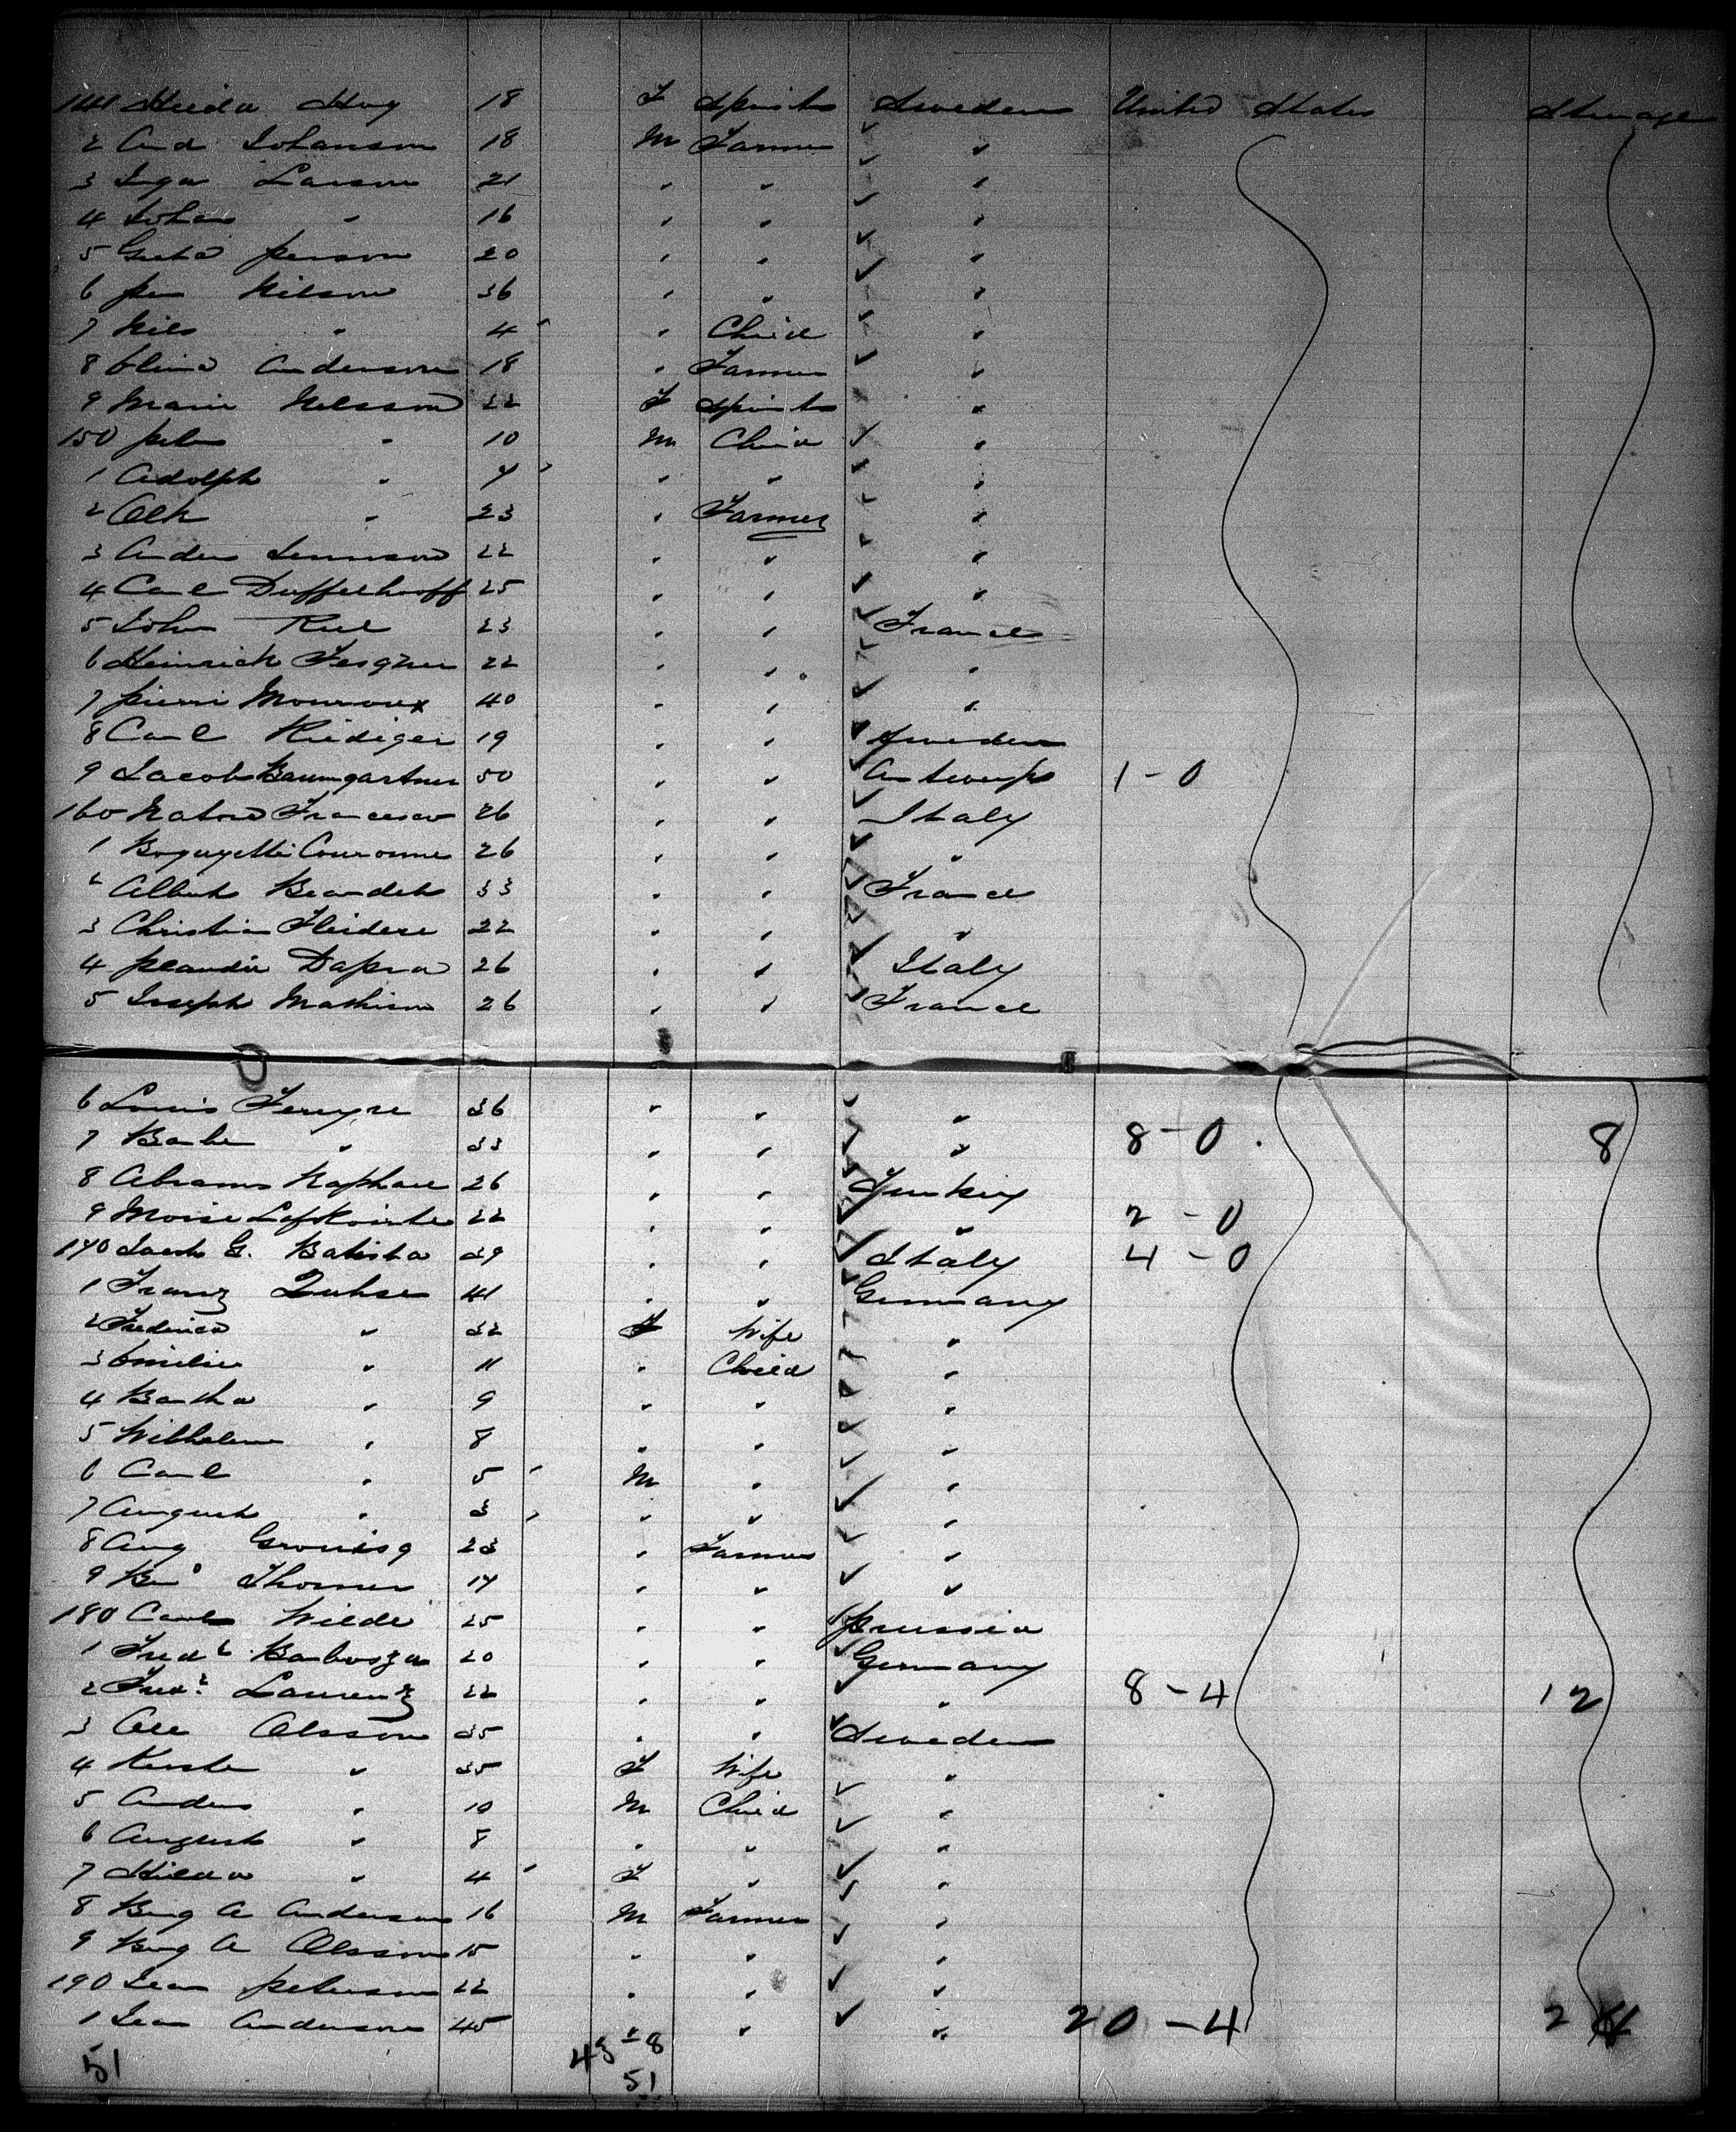 141 Hilda Hog 18 F Spinster Sweden United States Steerage
2 And Johanson 18 M Farmer " "
3 Inga Larson 21 " " " "
4 Johan " 16 " " " "
5 Person 20 " " " "
6 Per Nilson 36 " " " "
7 Nils " 4 " Child " "
8 Anderson 18 " Farmer " "
9 Maria Nelsson 22 F Spinster "
150 Peter " 10 M Child "
1 Adolph " 7 " " "
2 " 23 " Farmer "
3 Anders 22 " " "
4 Carl Duffelhoff 25 " " "
5 John 23 " " France
6 Heinrich 22 " " "
7 Pierri Mouroux 40 " " "
8 Carl Rudiger 19 " " Sweden
9 Jacob Baumgartner 50 " " Antwerp 1 - 0
160 Francesco 26 " " Italy
1 Couronne 26 " " "
2 Albert 33 " " France
3 Christian 22 " " "
4 Dapra 26 " " Italy
5 Joseph Mathieu 26 " " France
6 Louis 36 " " "
7 " 33 " " " 8 - 0 8
8 Abrams Raphael 26 " " Turkey
9 Moise 22 " " " 2 - 0
170 Jacob G. Batista 39 " " Italy 4 - 0
1 Franz 41 " " Germany
2 " 32 F Wife "
3 Emilie " 11 " Child "
4 Bertha " 9 " " "
5 Wilhelm " 8 " " "
6 Carl " 5 M " "
7 August " 3 " " "
8 Aug 23 " Farmer "
9 Thomer 17 " " "
180 Carl Wilde 25 " " Prussia
1 Fredk 20 " " Germany
2 Laurenz 22 " " " 8 - 4 12
3 Ole Olsson 35 " " Sweden
4 " 35 F Wife "
5 Anders " 10 M Child "
6 August " 8 " " "
7 Hilda " 4 F " "
8 A Anderson 16 M Farmer "
9 A Olsson 15 " " "
190 Peterson 22 " " "
1 Anderson 45 " " " 20 - 4 24
51 43 - 8
51